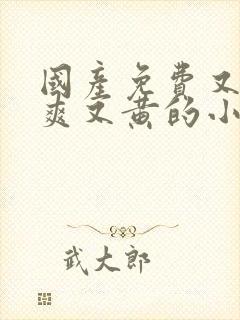 國產免費又
爽又黄的小
武大郎